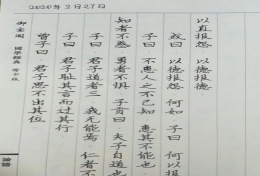 2020年2月27日
國學經典
論語
曾子曰 君子思不出其位
子曰 君子耻其言而过其行
子曰 君子道者三 我无能焉 仁者不
知者不惑 勇者不惧 子贡曰 夫子自道也
子曰 不患人之不己知 患其不能也
或曰 以德报怨 何如 子曰 何以报
以直报怨 以德报德